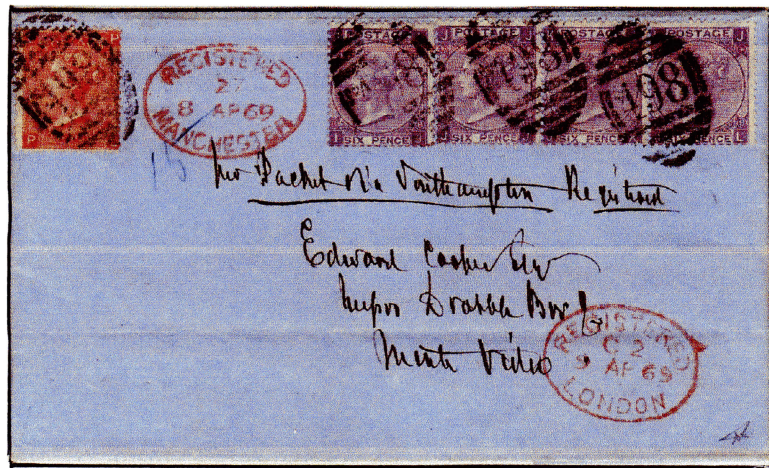 REGISTERED
27
8 AP 69
MANCHESTER
POSTAGE POSTAGE POSTAGE POSTAGE
498
SIX PENCE SIX PENCE SIX PENCE
per Packet via Southampton Registered
Edward Cooper Esqr
Messrs Drabble Bros
Monte Video
REGISTERED
C 2
9 AP 69
LONDON